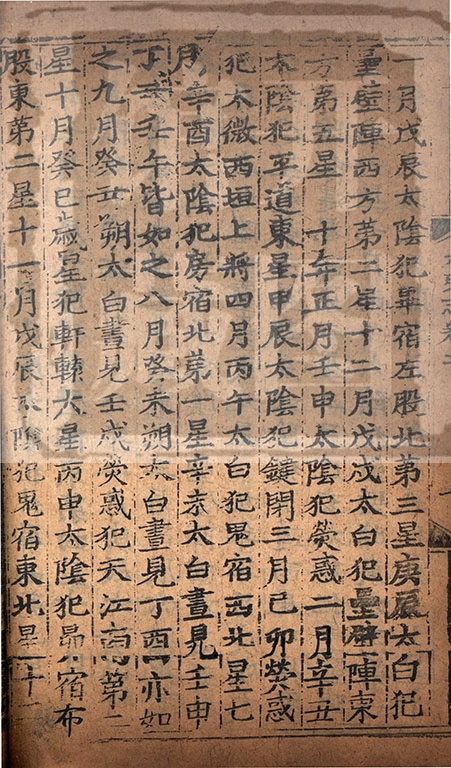 一月戊辰太陰犯畢宿左股北第三星庚辰太白犯
壘壁陣西方第二星十二月戊戌太白犯壘壁陣東
方第五星　十年正月壬申太陰犯熒惑二月辛丑
太陰犯平道東星甲辰太陰犯鍵閉三月己卯熒惑
犯太微西垣上將四月丙午太白犯鬼宿西北星七
月辛酉太陰犯房宿北第一星辛亥太白晝見壬申
丁亥壬午皆如之八月癸未朔太白晝見丁酉亦如
之九月癸丑朔太白晝見壬戌熒惑犯天江南第二
星十月癸巳歲星犯軒轅大星丙申太陰犯昴宿布
股東第二星十一月戊辰太陰犯鬼宿東北星十